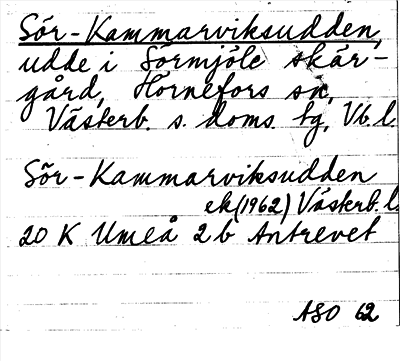 Sör-Kammarviksudden,
udde i Sörmjöle skär-
gård, Hörnefors sn,
Västerb. s. doms. tg, Vb.l.
Sör-Kammarviksudden
ek(1962) Västerb.l.
20 K Umeå 2 b Antrevet
ASO 62